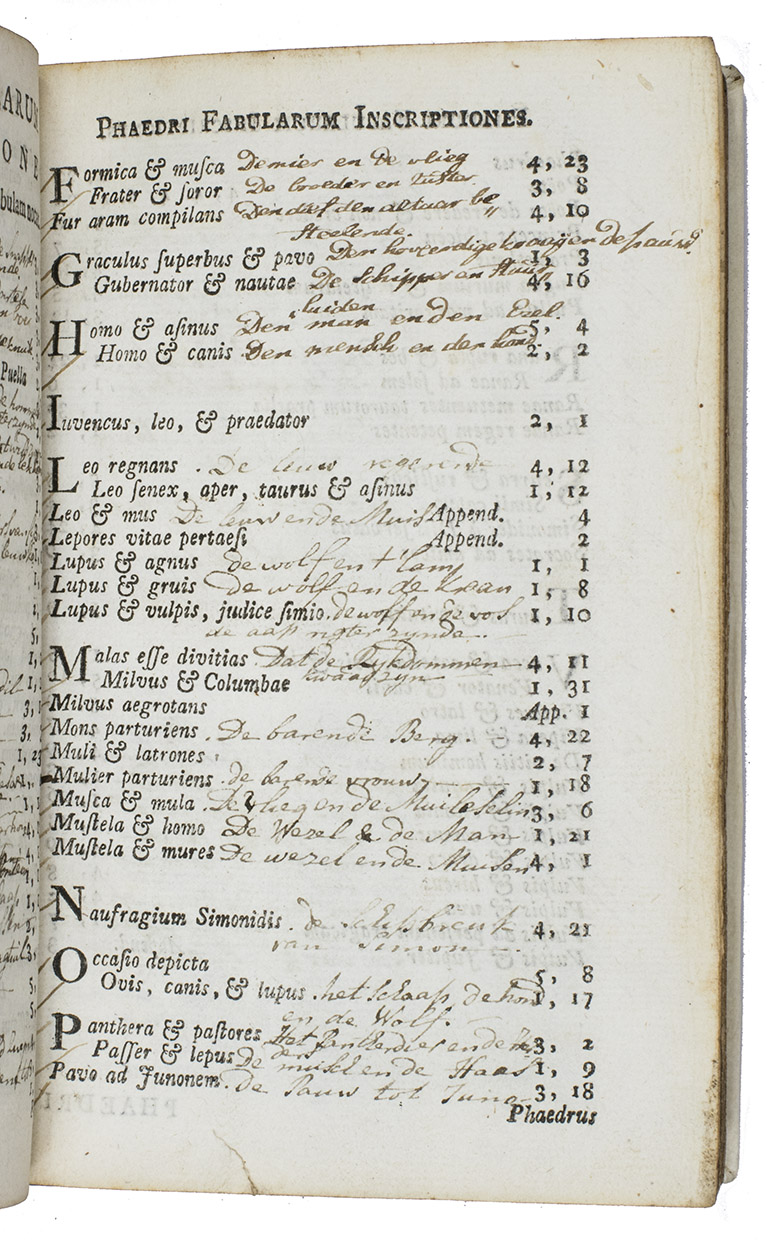 PHAEDRI FABULARUM INSCRIPTIONES.
Formica & muſca De mier en de vlieg 4, 23
Frater & ſoror De broeder en zuster 3, 8
Fur aram compilans Den dief den altaar be„ 4, 10
steelende.
Graculus ſuperbus & pavo Den hoveerdige kraaij en de paúw 1, 3
Gubernator & nautae De Schipper en stuur 4, 16
luiden
Homo & aſinus Den man en den Ezel. 5, 4
Homo & canis Den mensch en den hond 2, 2
Iuvencus, leo, & praedator 2, 1
Leo regnans De leeuw regerende 4, 12
Leo ſenex, aper, taurus & aſinus 1, 12
Leo & mus De leeuw en de Muis Append. 4
Lepores vitae pertaeſi Append. 2
Lupus & agnus de wolf en t'lam 1, 1
Lupus & gruis de wolf en de kraan 1, 8
Lupus & vulpis, judice ſimio. de wolf en de vos 1, 10
de aap rigter zynde
Malas eſſe divitias Dat de Rykdommen 4, 11
kwaad zyn
Milvus & Columbae 1, 31
Milvus aegrotans App. 1
Mons parturiens De barende Berg. 4, 22
Muli & latrones 2, 7
Mulier parturiens de barende vrouw 1, 18
Muſca & mula De vlieg en de Muileselin 3, 6
Muſtela & homo De Wezel & de Man 1, 21
Muſtela & mures De wezel en de Muisen 4, 1
Naufragium Simonidis. de schipbreuk 4, 21
van Simon
Occaſio depicta 5, 8
Ovis, canis, & lupus. het schaap, de hond 1, 17
en de Wolf.
Panthera & paſtores Het Pantherdier en de her 3, 2
ders
Paſſer & lepus De musch en de Haas 1, 9
Pavo ad Junonem. de Pauw tot Juno 3, 18
Phaedrus